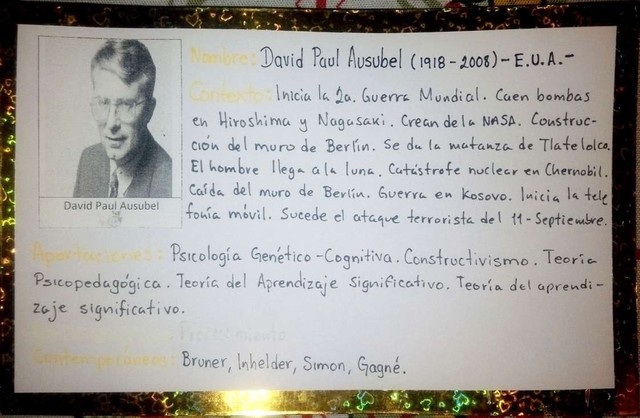 Nombre: David Paul Ausubel (1918-2008)-E.U.A.-
Contexto: Inicia la 2a. Guerra Mundial. Caen bombas
en Hiroshima y Nagasaki. Crean de la NASA. Construc-
ción del muro de Berlín. Se da la matanza de Tlatelolco.
El hombre llega a la luna. Catástrofe nuclear en Chernobil.
Caída del muro de Berlín. Guerra en Kosovo. Inicia la tele
fonía móvil. Sucede el ataque terrorista del 11-Septiembre.
David Paul Ausubel
Aportaciones: Psicología Genético-Cognitiva. Constructivismo. Teoría
Psicopedagógica. Teoría del Aprendizaje Significativo. Teoría del aprendi-
zaje significativo.
Contemporáneos: Bruner, Inhelder, Simon, Gagné.